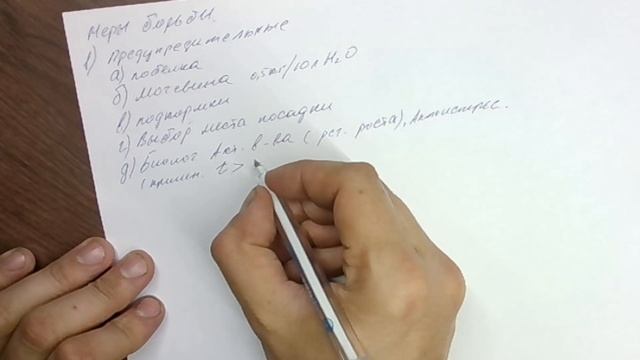 Меры борьбы.
1) Предупредительные
а) побелка
б) Мочевина 0,5кг/10л H₂O
в) подкормки
г) Выбор места посадки
д) Биолог. Акт. в-ва (рег. роста), Антистрес.
(примен. t >